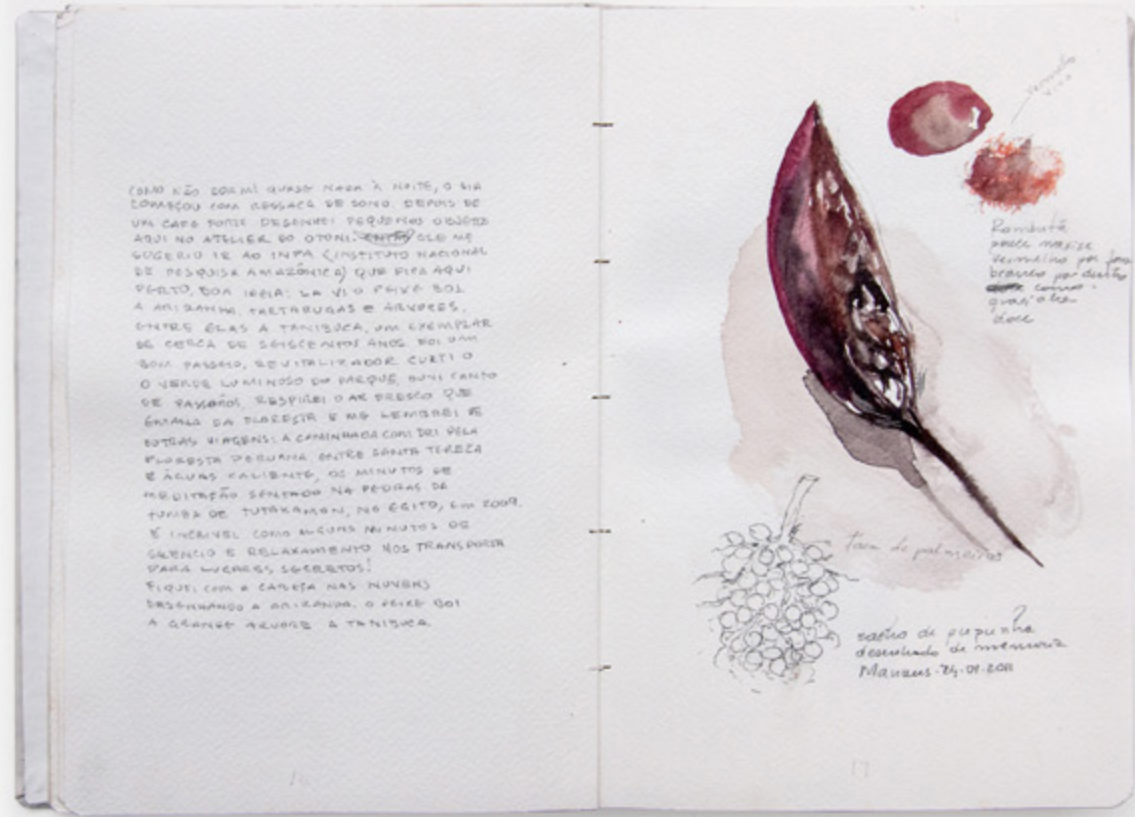 COMO NÃO DORMI QUASE NADA À NOITE, O DIA
COMEÇOU COM RESSACA DE SONO. DEPOIS DE
UM CAFÉ FORTE DESENHEI PEQUENOS OBJETOS
AQUI NO ATELIER DO OTONI. ENTÃO ELE ME
SUGERIU IR AO INPA (INSTITUTO NACIONAL
DE PESQUISA AMAZÔNICA) QUE FICA AQUI
PERTO, BOA IDEIA: LÁ VI O PEIXE BOI
A ARIRANHA, TARTARUGAS E ÁRVORES,
ENTRE ELAS A TANIBUCA, UM EXEMPLAR
DE CERCA DE SEISCENTOS ANOS. FOI UM
BOM PASSEIO, REVITALIZADOR CURTI O
O VERDE LUMINOSO DO PARQUE, OUVI CANTO
DE PASSÁROS, RESPIREI O AR FRESCO QUE
EMANA DA FLORESTA E ME LEMBREI DE
OUTRAS VIAGENS: A CAMINHADA COM DRI PELA
FLORESTA PERUANA ENTRE SANTA TEREZA
E ÁGUAS CALIENTE, OS MINUTOS DE
MEDITAÇÃO SENTADO NA PEDRAS DA
TUMBA DE TUTAKAMON, NO EGITO, EM 2009.
É INCRIVEL COMO ALGUNS MINUTOS DE
SILENCIO E RELAXAMENTO NOS TRANSPORTA
PARA LUGARES SECRETOS!
FIQUEI COM A CABEÇA NAS NUVENS
DESENHANDO A ARIRANHA. O PEIXE BOI
A GRANDE ÁRVORE A TANIBUCA.
16
vermelho
vivo
Rambutã
parece maxixe
vermelho por fora
branco por dentro
doce
de palmeiras
cacho de pupunha
desenhado de memoria
Manaus - 24-01-2011
17